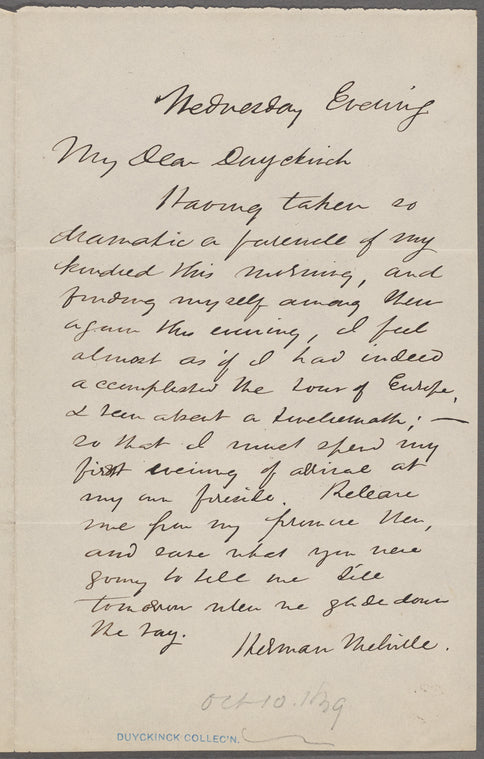 Wednesday Evening
My Dear Duyckinck
Having taken so
dramatic a farewell of my
kindred this morning, and
finding myself among them
again this evening, I feel
almost as if I had indeed
accomplished the tour of Europe,
& been absent a twelvemonth; —
so that I must spend my
first evening of arrival at
my own fireside. Release
me from my promise then,
and save what you were
going to tell me till
tomorrow when we glide down
the bay.
Herman Melville.
Oct 10. 1849
DUYCKINCK COLLEC'N.